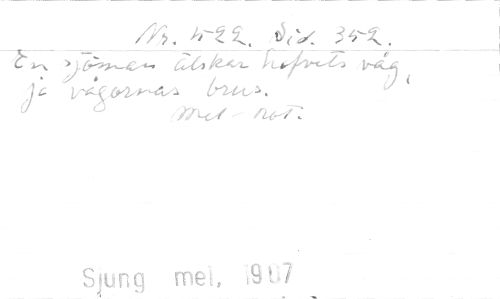 Nr. 522. Sid. 352.
En sjöman älskar hafvets våg,
ja vågornas brus.
Mel-not.
Sjung mel, 1907